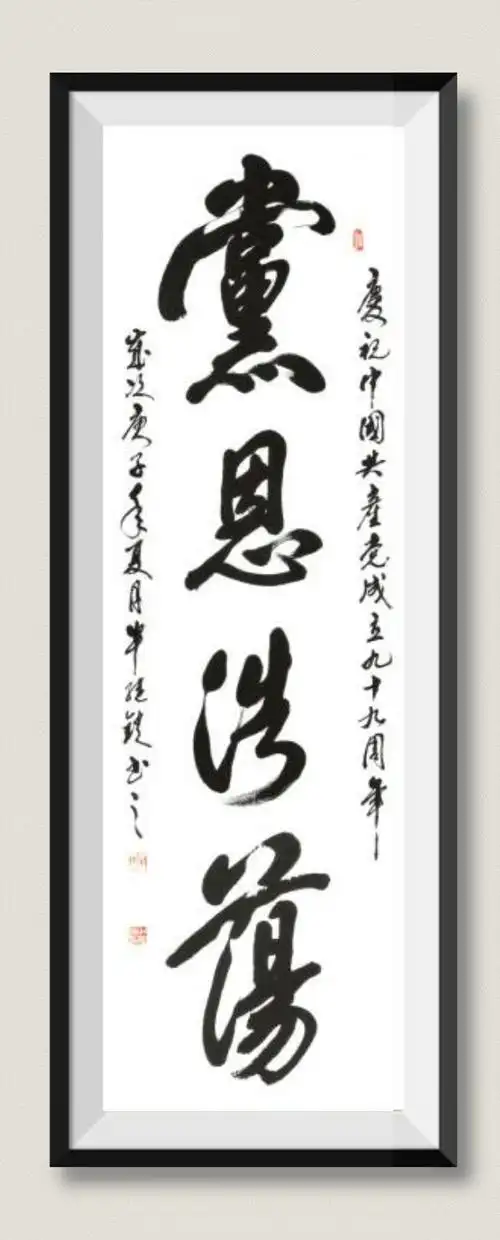 慶祝中國共產党成立九十九周年
黨恩浩蕩
歲次庚子年夏月牛廷鎖书之